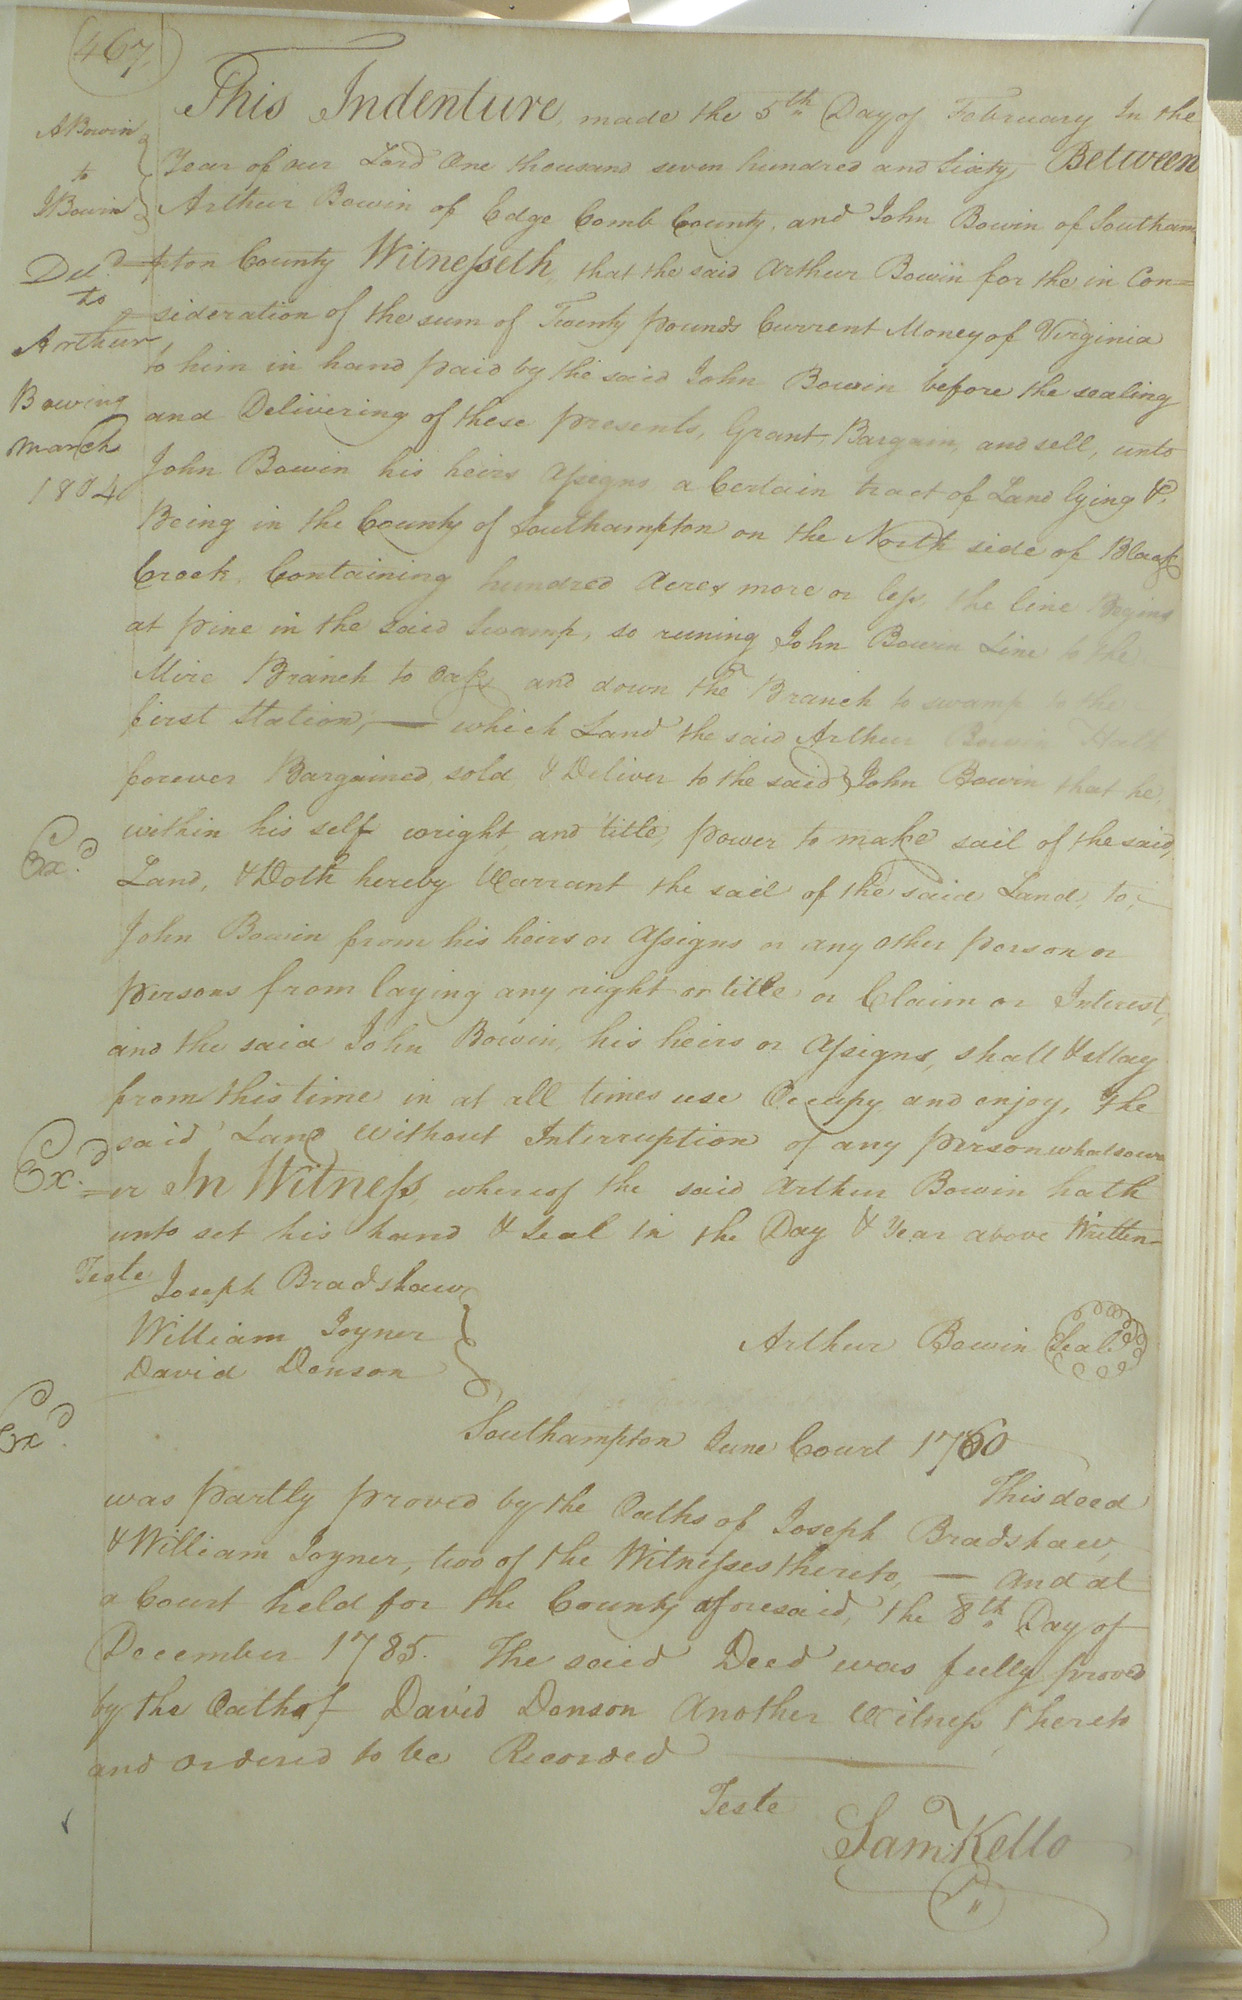 467.
A Bowin
to
J Bowin
Deld.
to
Arthur
Bowing
March
1804
This Indenture, made the 5th Day of February In the
Year of our Lord One thousand seven hundred and Sixty, Between
Arthur Bowin of Edge Comb County, and John Bowin of Southam
pton County Witnesseth, that the said Arthur Bowin for the in Con=
=sideration of the sum of Twenty pounds Current Money of Virginia
to him in hand paid by the said John Bowin before the sealing
and Delivering of these presents, Grant, Bargain, and sell, unto
John Bowin his heirs Assigns a Certain tract of Land lying &
Being in the County of Southampton on the North side of Black
Creek, Containing hundred Acres more or less, the line Begins
at pine in the said Swamp, so runing John Bowin Line to the
Mire Branch to oak and down the Branch to swamp to the
first Station, — which Land the said Arthur Bowin Hath
forever Bargained sold & Deliver to the said John Bowin that he,
within his self wright and title, power to make sail of the said,
Land, & Doth hereby Warrant the sail of the said Land, to,
John Bowin from his heirs or Assigns or any other person or
persons from laying any right or title or Claim or Interest,
and the said John Bowin, his heirs or Assigns, shall & May
from this time in at all times use Occupy and enjoy, the
said Land without Interruption of any person whatsoev
=er In Witness, whereof the said Arthur Bowin hath
unto set his hand & Seal in the Day & Year above Written—
Exd.
Exd.
Exd.
Teste
Joseph Bradshaw
William Joyner
David Denson
Arthur Bowin Seal
Southampton June Court 1760
This deed
was partly proved by the Oaths of Joseph Bradshaw,
& William Joyner, two of the Witnesses thereto, — And at
a Court held for the County aforesaid, the 8th Day of
December 1785. The said Deed was fully proved
by the Oath of David Denson Another Witness, thereto
and ordered to be Recorded
Teste
Saml. Kello